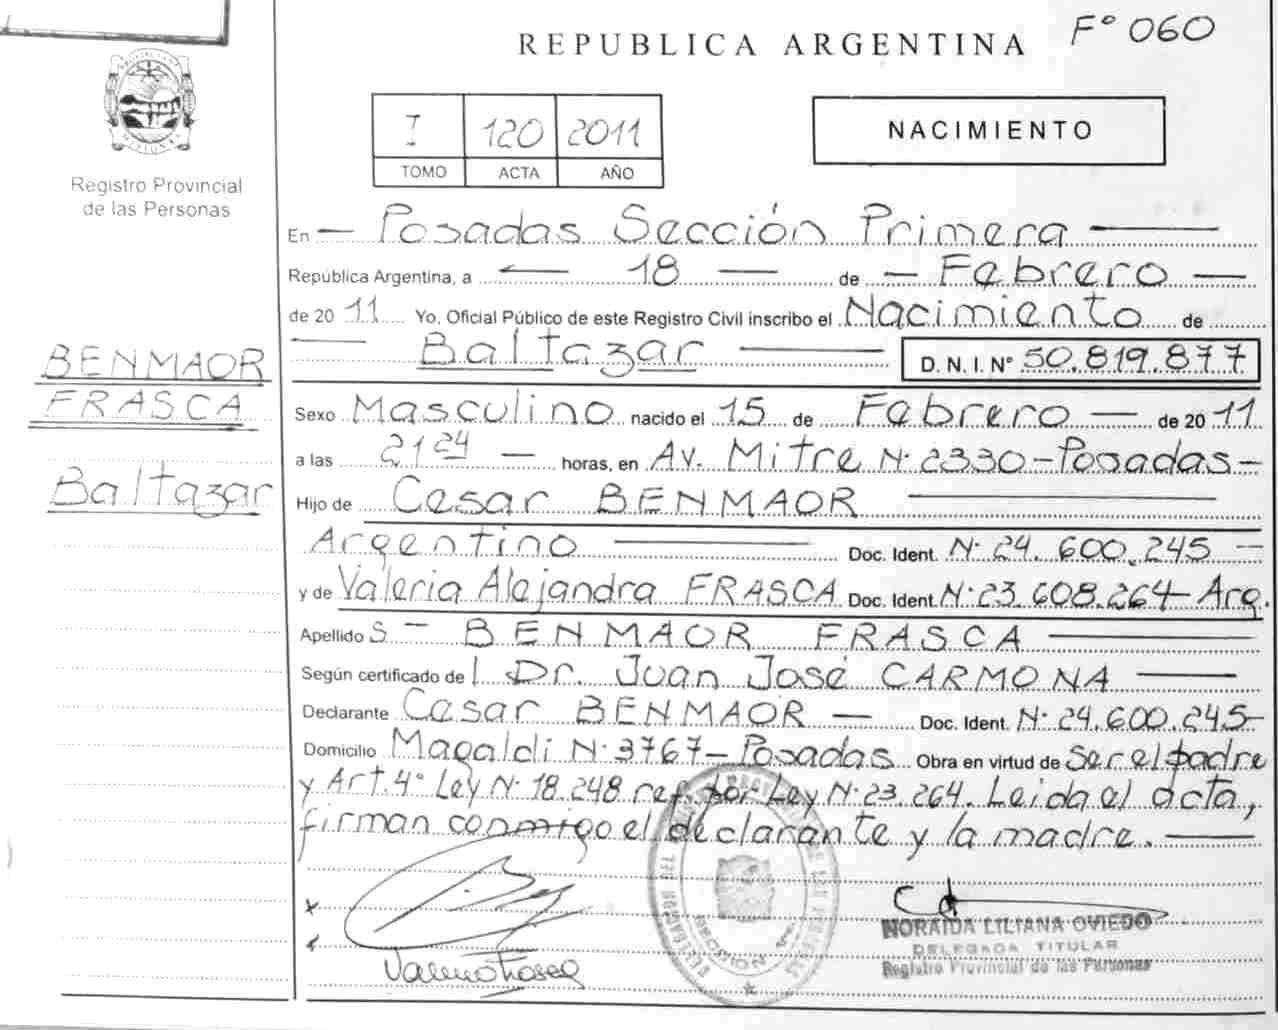 F° 060
REPUBLICA ARGENTINA
I 120 2011
TOMO ACTA AÑO
NACIMIENTO
Registro Provincial
de las Personas
En — Posadas Sección Primera —
República Argentina, a — 18 — de — Febrero —
de 20 11 Yo, Oficial Público de este Registro Civil inscribo el Nacimiento de
— Baltazar — D. N. I. N° 50.819.877
BENMAOR
FRASCA
Baltazar
Sexo Masculino nacido el 15 de Febrero — de 20 11
a las 21 24 — horas, en Av. Mitre N· 2330 - Posadas -
Hijo de Cesar BENMAOR —
Argentino — Doc. Ident. N· 24.600.245 —
y de Valeria Alejandra FRASCA Doc. Ident. N· 23.608.264 - Arg.
Apellido S — BENMAOR FRASCA —
Según certificado de l Dr. Juan José CARMONA —
Declarante Cesar BENMAOR — Doc. Ident. N· 24.600.245-
Domicilio Magaldi N· 3767 - Posadas Obra en virtud de ser el padre
y Art. 4° Ley N· 18.248 ref. por Ley N· 23.264. Leida el acta,
firman conmigo el declarante y la madre. —
NORAIDA LILIANA OVIEDO
DELEGADA TITULAR
Registro Provincial de las Personas